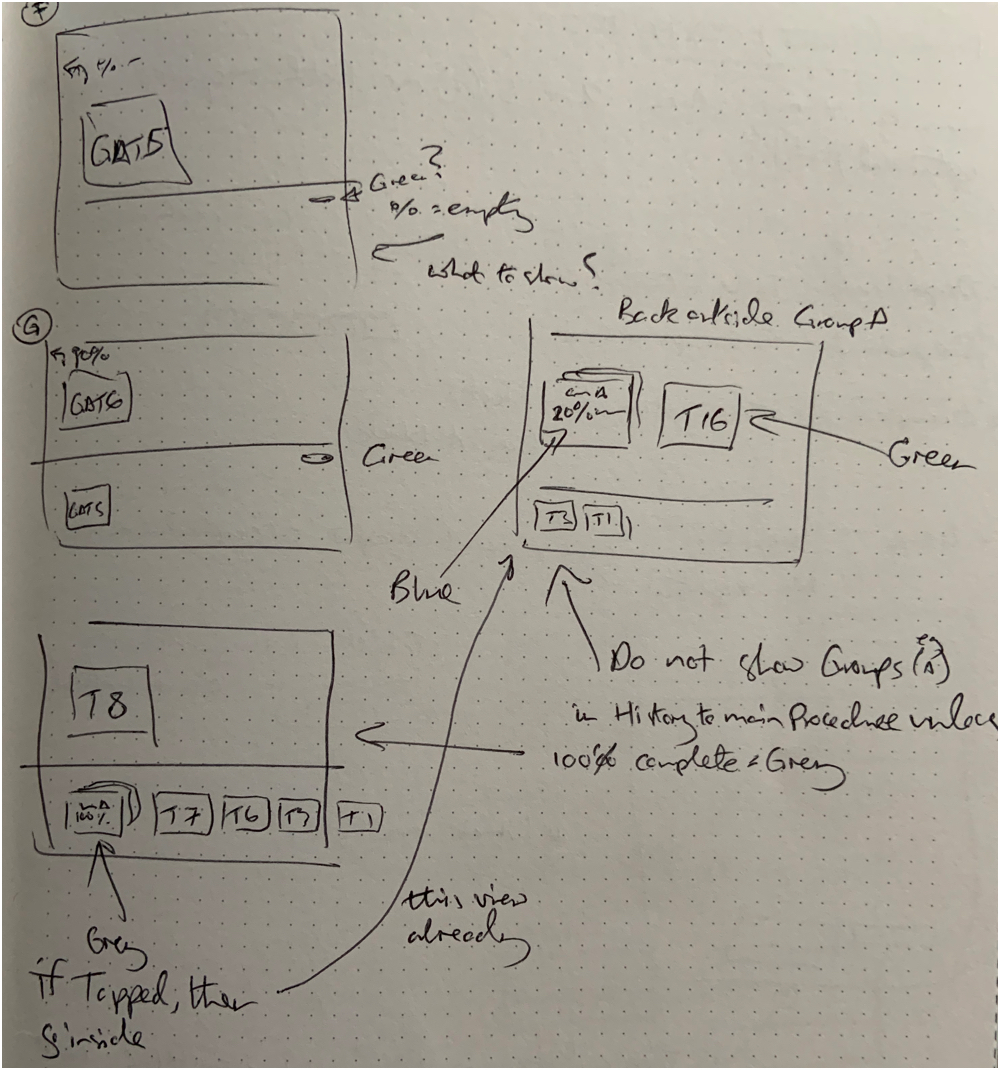 F
GAT5
Green?
= empty
what to show?
G
90%
GAT6
Green
GAT5
Back outside Group A
20%
T16
Green
T3 T1
Blue
Do not show Groups (eg A)
in History to main Procedure unless
100% complete = Grey
T8
100%
T7 T6 T3 T1
Grey
this view
already
if Tapped, then
inside